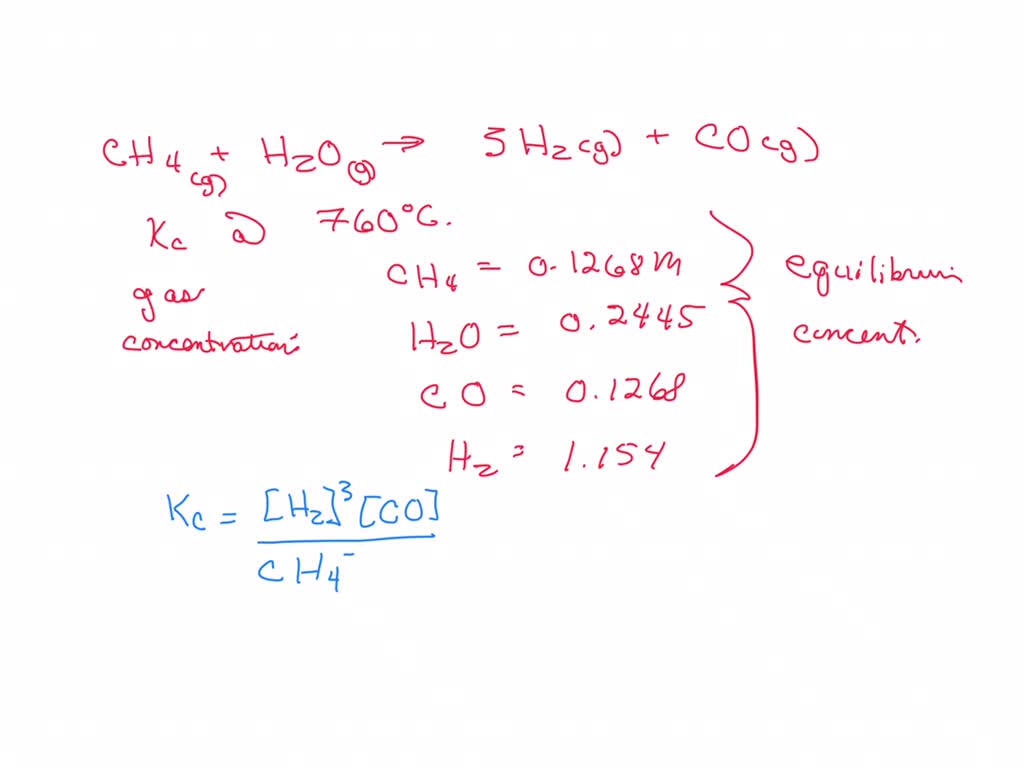 CH4(g) + H2O(g) → 3H2(g) + CO(g)
Kc @ 760°C.
gas concentration:
CH4 = 0.1268M
H2O = 0.2445
CO = 0.1268
H2 = 1.154
equilibrium
concent.
Kc = [H2]^3 [CO]
CH4